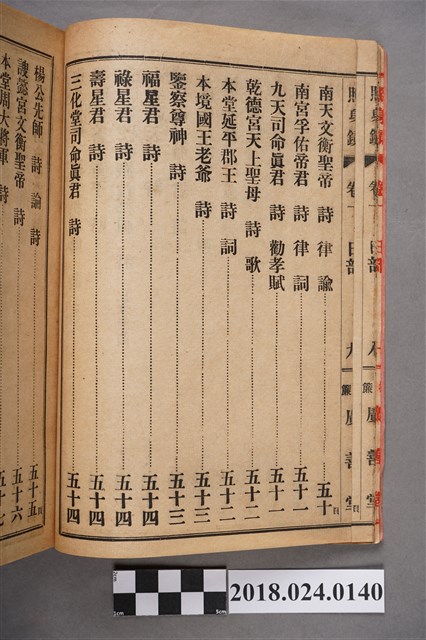 南天文衡聖帝 詩 律 諭 五十
南宮孚佑帝君 詩 律 詞 五十一
九天司命眞君 詩 勸孝賦 五十一
乾德宮天上聖母 詩 歌 五十二
本堂延平郡王 詩 詞 五十二
本境國王老爺 詩 五十三
鑒察尊神 詩 五十三
福星君 詩 五十四
祿星君 詩 五十四
壽星君 詩 五十四
三化堂司命眞君 詩 五十四
楊公先師 詩 諭 詩 五十五
謖懿宮文衡聖帝 詩 五十六
本堂周大將軍 詩 五十七
2018.024.0140